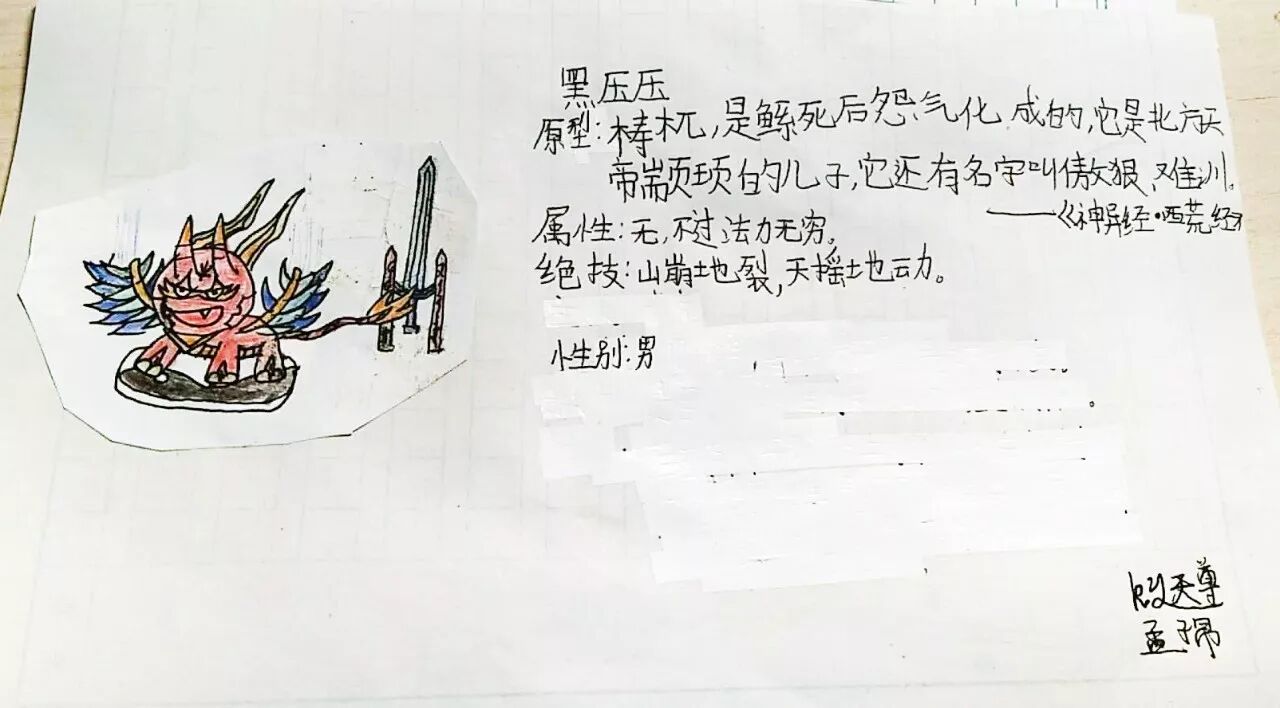 黑压压
原型:梼杌,是鲧死后怨气化成的,它是北方天
帝颛顼的儿子,它还有名字叫傲狠、难训。
——《神异经·西荒经》
属性:无,不过法力无穷。
绝技:山崩地裂,天摇地动。
性别:男
天尊
孟子